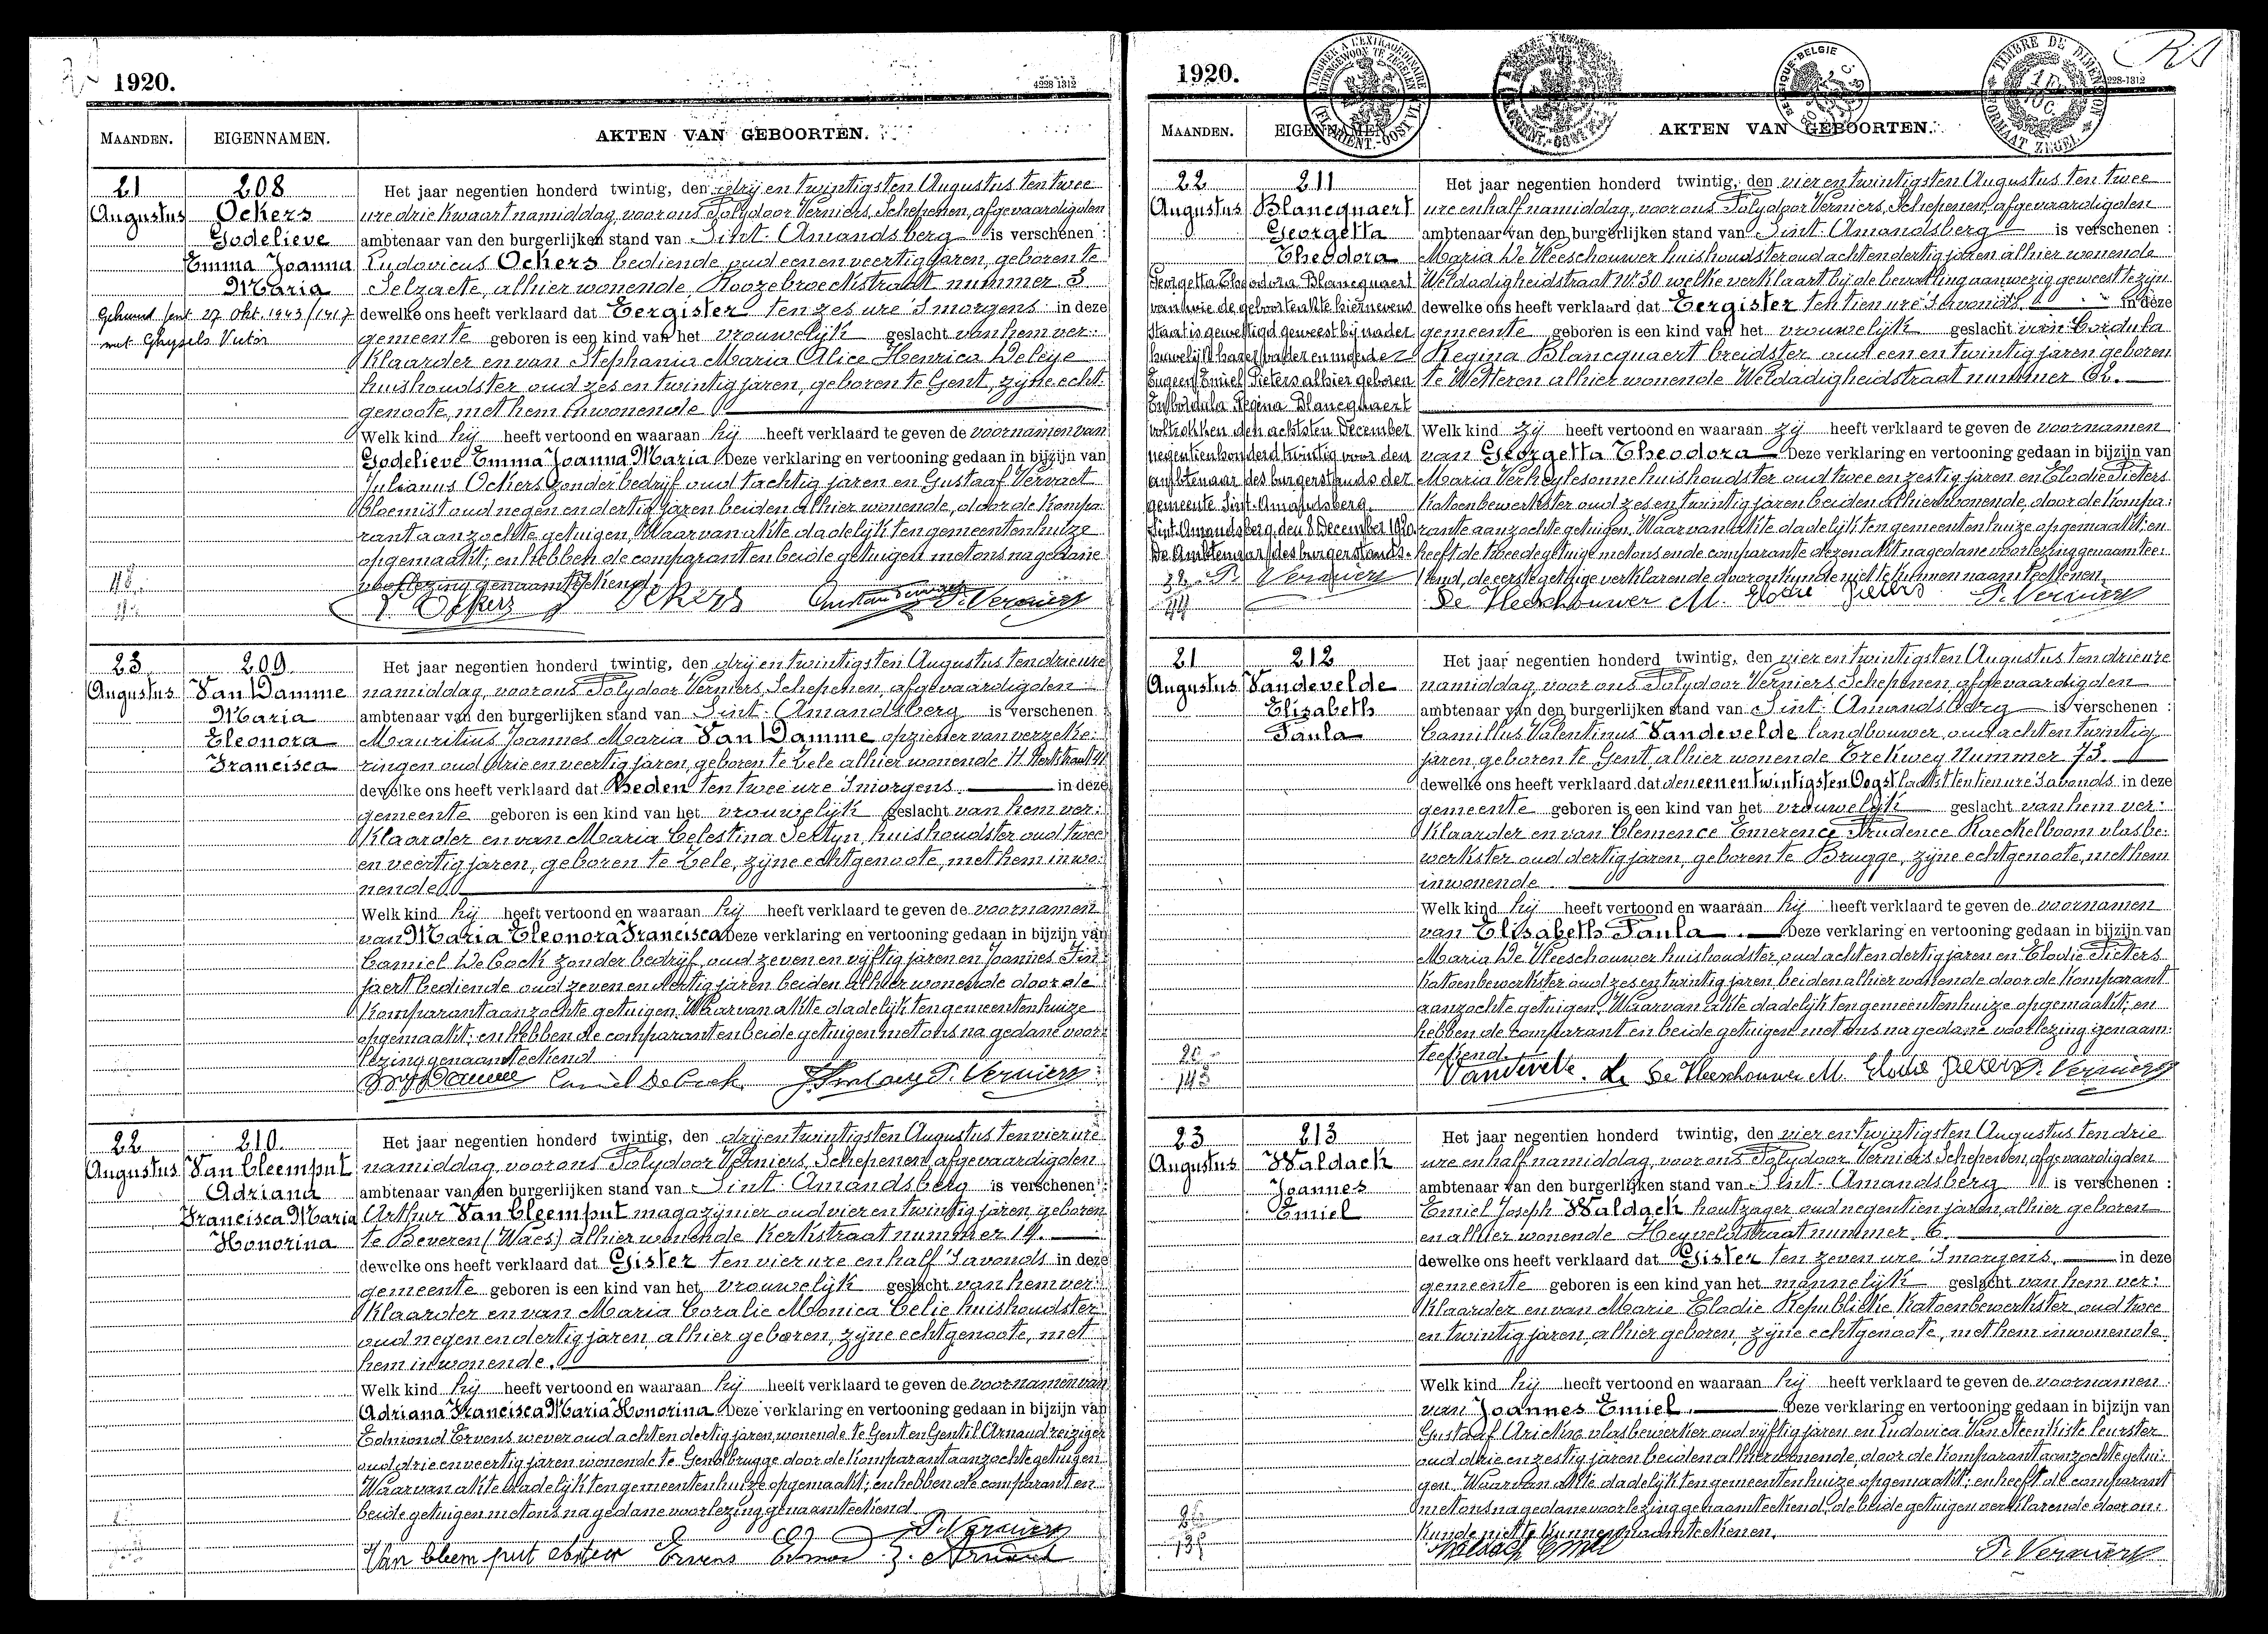 1920.
4228 1312
MAANDEN.
EIGENNAMEN.
AKTEN VAN GEBOORTEN.
21
Augustus
208
Ockers
Godelieve
Emma Joanna
Maria
Gehuwd Gent 27 Okt. 1943/1417
met Ghysels Victor
Het jaar negentien honderd twintig, den drij en twintigsten Augustus ten twee
ure drie kwaart namiddag, voor ons Polydoor Verniers, Schepenen, afgevaardigden
ambtenaar van den burgerlijken stand van Sint-Amandsberg is verschenen :
Ludovicus Ockers bediende oud een en veertig jaren, geboren te
Selzaete, alhier wonende, Roozebroeckstraat nummer 3
dewelke ons heeft verklaard dat Eergister ten zes ure 's morgens in deze
gemeente geboren is een kind van het vrouwelijk geslacht van hem ver:
klaarder en van Stephania Maria Alice Henrica Deleye
huishoudster oud zes en twintig jaren, geboren te Gent, zijne echt-
genoote, met hem inwonende
Welk kind hij heeft vertoond en waaraan hij heeft verklaard te geven de voornamen van
Godelieve Emma Joanna Maria Deze verklaring en vertooning gedaan in bijzijn van
Julianus Ockers zonder bedrijf oud tachtig jaren en Gustaaf Vervaet
bloemist oud negen en dertig jaren beiden alhier wonende, door de kompa-
rant aanzochte getuigen, Waarvan akte dadelijk ten gemeentenhuize
opgemaakt; en hebben de comparant en beide getuigen met ons na gedane
voorlezing genaamteekend.
Ockers Ockers P. Verniers
23
Augustus
209
Van Damme
Maria
Eleonora
Francisca
Het jaar negentien honderd twintig, den drij en twintigsten Augustus ten drie ure
namiddag, voor ons Polydoor Verniers, Schepenen, afgevaardigden
ambtenaar van den burgerlijken stand van Sint-Amandsberg is verschenen :
Mauritius Joannes Maria Van Damme opziener van verzeke:
ringen oud drie en veertig jaren, geboren te Zele alhier wonende
dewelke ons heeft verklaard dat Heden ten twee ure 's morgens. in deze
gemeente geboren is een kind van het vrouwelijk geslacht van hem ver:
klaarder en van Maria Celestina Sertyn, huishoudster oud twee
en veertig jaren, geboren te Zele, zijne echtgenoote, met hem inwo:
nende.
Welk kind hij heeft vertoond en waaraan hij heeft verklaard te geven de voornamen
van Maria Eleonora Francisca Deze verklaring en vertooning gedaan in bijzijn van
Camiel De Cock zonder bedrijf, oud zeven en vijftig jaren en Joannes
bediende oud zeven en dertig jaren beiden alhier wonende door de
komparant aanzochte getuigen, Waarvan akte dadelijk ten gemeentenhuize
opgemaakt; en hebben de comparant en beide getuigen met ons na gedane voor:
lezing genaamteekend
Camiel De Cock P. Verniers
22
Augustus
210.
Van Cleemput
Adriana
Francisca Maria
Honorina
Het jaar negentien honderd twintig, den drij en twintigsten Augustus ten vier ure
namiddag, voor ons Polydoor Verniers, Schepenen, afgevaardigden
ambtenaar van den burgerlijken stand van Sint-Amandsberg is verschenen :
Arthur Van Cleemput magazijnier oud vier en twintig jaren, geboren
te Beveren (Waes) alhier wonende Kerkstraat nummer 14.
dewelke ons heeft verklaard dat Gister ten vier ure en half 's avonds in deze
gemeente geboren is een kind van het vrouwelijk geslacht van hem ver:
klaarder en van Maria Coralie Monica Celie huishoudster
oud negen en dertig jaren alhier geboren, zijne echtgenoote, met
hem inwonende.
Welk kind hij heeft vertoond en waaraan hij heeft verklaard te geven de voornamen van
Adriana Francisca Maria Honorina Deze verklaring en vertooning gedaan in bijzijn van
Edmond Ervens wever oud acht en dertig jaren, wonende te Gent en Gentil Arnaud reiziger
oud drie en veertig jaren wonende te Gendbrugge door de komparant aanzochte getuigen
Waarvan akte dadelijk ten gemeentenhuize opgemaakt; en hebben de comparant en
beide getuigen met ons na gedane voorlezing genaamteekend
P. Verniers
Van Cleemput Ervens
1920.
MAANDEN.
EIGENNAMEN.
AKTEN VAN GEBOORTEN.
TIMBRE DE DIMENSION
FORMAAT ZEGEL
22
Augustus
211
Blancquaert
Georgetta
Theodora
Georgetta Theodora Blancquaert
van wie de geboorteakte hiernevens
staat is gewettigd geweest bij nader
huwelijk harer vader en moeder
Eugeen Emiel Pieters alhier geboren
En Cordula Regina Blancquaert
voltrokken den achtsten December
negentienhonderd twintig voor den
ambtenaar des burgerstands der
gemeente Sint-Amandsberg.
Sint-Amandsberg, den 8 December 1920.
De Ambtenaar des burgerstands.
P. Verniers
Het jaar negentien honderd twintig, den vier en twintigsten Augustus ten twee
ure en half namiddag, voor ons Polydoor Verniers, Schepenen, afgevaardigden
ambtenaar van den burgerlijken stand van Sint-Amandsberg is verschenen :
Maria De Vleeschouwer huishoudster oud acht en dertig jaren alhier wonende
Weldadigheidstraat Nr. 30 welke verklaart bij de bevalling aanwezig geweest te zijn
dewelke ons heeft verklaard dat Eergister ten tien ure 's avonds in deze
gemeente geboren is een kind van het vrouwelijk geslacht van Cordula
Regina Blancquaert breidster oud een en twintig jaren geboren
te Wetteren alhier wonende Weldadigheidstraat nummer 62.
Welk kind zij heeft vertoond en waaraan zij heeft verklaard te geven de voornamen
van Georgetta Theodora Deze verklaring en vertooning gedaan in bijzijn van
Maria Verheylesonne huishoudster oud twee en zestig jaren en Elodie Pieters
katoenbewerkster oud zes en twintig jaren beiden alhier wonende, door de kompa:
rante aanzochte getuigen. Waarvan akte dadelijk ten gemeentenhuize opgemaakt: en
heeft de tweede getuige met ons en de comparante dezen akt na gedane voorlezing genaamtee:
kend, de eerste getuige verklarende door onkunde niet te kunnen naamteekenen.
De Vleeschouwer M. Elodie Pieters P. Verniers
21
Augustus
212
Vandevelde
Elisabeth
Paula
Het jaar negentien honderd twintig, den vier en twintigsten Augustus ten drie ure
namiddag, voor ons Polydoor Verniers, Schepenen, afgevaardigden
ambtenaar van den burgerlijken stand van Sint-Amandsberg is verschenen :
Camillus Valentinus Vandevelde landbouwer, oud acht en twintig
jaren, geboren te Gent, alhier wonende Trekweg Nummer 73.
dewelke ons heeft verklaard dat den een en twintigsten Oogst laatst ten tien ure 's avonds in deze
gemeente geboren is een kind van het vrouwelijk geslacht van hem ver:
klaarder en van Clemence Emerence Prudence Raeckelboom vlasbe:
werkster oud dertig jaren, geboren te Brugge, zijne echtgenoote, met hem
inwonende.
Welk kind hij heeft vertoond en waaraan hij heeft verklaard te geven de voornamen
van Elisabeth Paula. Deze verklaring en vertooning gedaan in bijzijn van
Maria De Vleeschouwer huishoudster, oud acht en dertig jaren en Elodie Pieters
katoenbewerkster oud zes en twintig jaren, beiden alhier wonende door de komparant
aanzochte getuigen. Waarvan akte dadelijk ten gemeentenhuize opgemaakt, en
hebben de comparant en beide getuigen met ons na gedane voorlezing genaam:
teekend.
Vandevelde. De Vleeschouwer M. Elodie Pieters P. Verniers
23
Augustus
213
Waldack
Joannes
Emiel
Het jaar negentien honderd twintig, den vier en twintigsten Augustus ten drie
ure en half namiddag, voor ons Polydoor Verniers Schepenen, afgevaardigden
ambtenaar van den burgerlijken stand van Sint-Amandsberg is verschenen :
Emiel Joseph Waldack houtzager oud negentien jaren, alhier geboren
en alhier wonende Heyveldstraat nummer 6
dewelke ons heeft verklaard dat Gister ten zeven ure 's morgens. in deze
gemeente geboren is een kind van het mannelijk geslacht van hem ver:
klaarder en van Marie Elodie Republicke katoenbewerkster, oud twee
en twintig jaren, alhier geboren, zijne echtgenoote, met hem inwonende
Welk kind hij heeft vertoond en waaraan hij heeft verklaard te geven de voornamen
van Joannes Emiel. Deze verklaring en vertooning gedaan in bijzijn van
Gustaaf vlasbewerker oud vijftig jaren en Ludovica Van Steenkiste leurster
oud drie en zestig jaren beiden alhier wonende, door de komparant aanzochte getui:
gen. Waarvan akte dadelijk ten gemeentenhuize opgemaakt: en heeft de comparant
met ons na gedane voorlezing genaamteekend, de beide getuigen verklarende door on:
kunde niet te kunnen naamteekenen.
Waldack Emiel P. Verniers